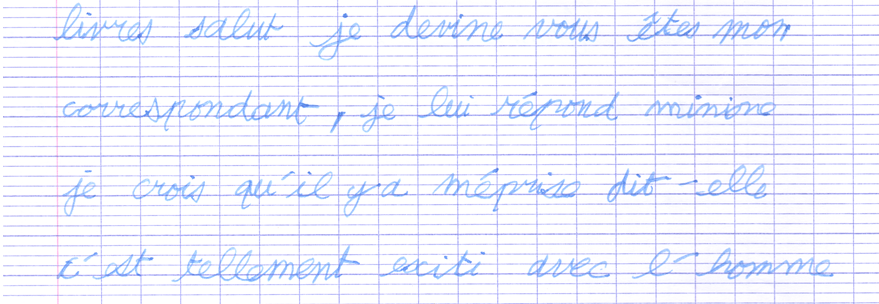 livres salut je devine vous êtes mon
correspondant, je lui répond minine
je crois qu'il y a méprise dit-elle
c'est tellement exciti avec l'homme